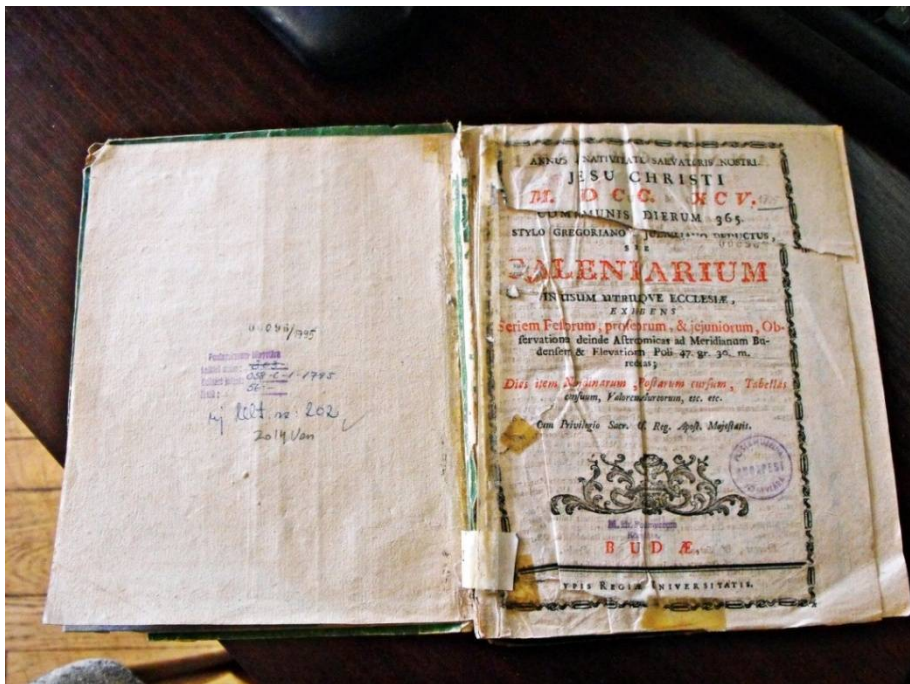 00096/1795
Postamúzeum
058-C-1-1795
új lelt. sz: 202
2014
ANNUS A NATIVITATE SALVATORIS NOSTRI
JESU CHRISTI
M. D C C. XC V.
COMMUNIS DIERUM 365.
STYLO GREGORIANO DEDUCTUS,
SEU
CALENDARIUM
IN USUM UTRIUQVE ECCLESIÆ,
EXIBENS
Seriem Festorum, profestorum, & jejuniorum, Ob-
servationes deinde Astronomicas ad Meridianum Bu-
densem & Elevationem Poli 47. gr. 30. m.
Dici item Nundinarum, Postarum cursum, Tabellas
etc. etc.
Cum Privilegio Sacr. C. Reg. Apost. Majestatis.
BUDÆ,
YPIS REGIÆ UNIVERSITATIS.